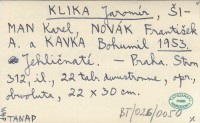 KLIKA Jaromír, ŠI-
MAN Karel, NOVÁK František
A. a KAVKA Bohumil 1953.
Jehličnaté. - Praha. Stron
312, il., 22 tab. dwustronne, opr.,
obwoluta, 22 x 30 cm.
BT/026/0050
TANAP